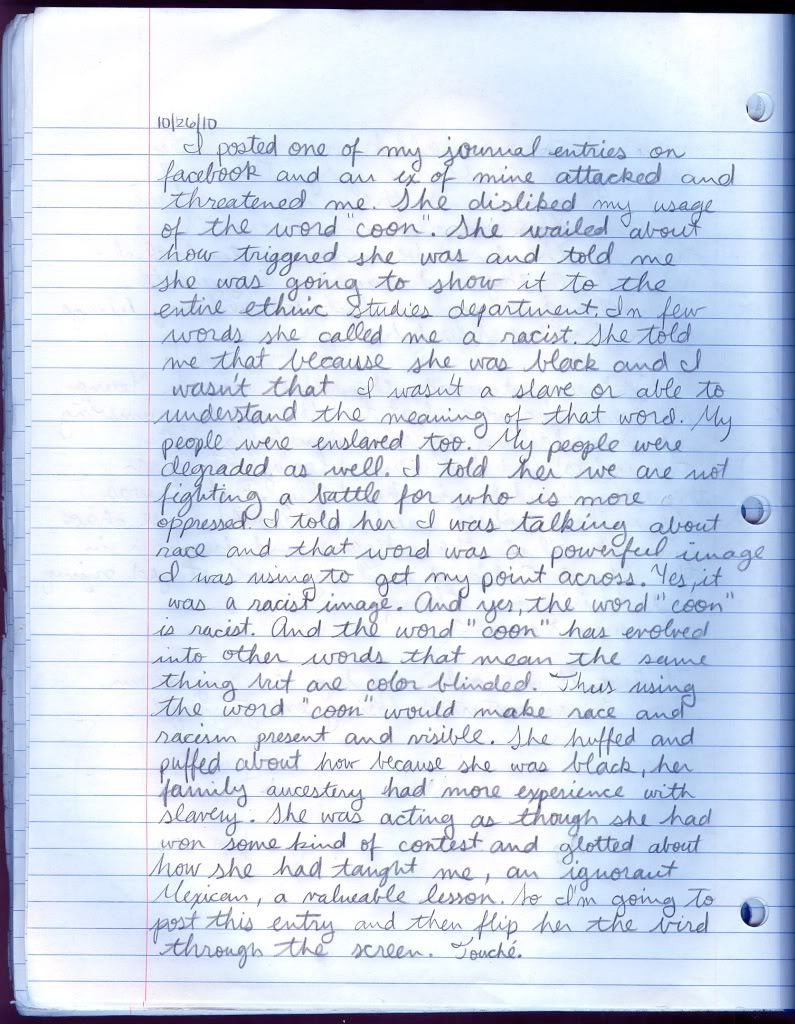 10/26/10
I posted one of my journal entries on
facebook and an ex of mine attacked and
threatened me. She disliked my usage
of the word "coon". She wailed about
how triggered she was and told me
she was going to show it to the
entire ethinic Studies department. In few
words she called me a racist. She told
me that because she was black and I
wasn't that I wasn't a slave or able to
understand the meaning of that word. My
people were enslaved too. My people were
degraded as well. I told her we are not
fighting a battle for who is more
oppressed. I told her I was talking about
race and that word was a powerful image
I was using to get my point across. Yes, it
was a racist image. And yes, the word "coon"
is racist. And the word "coon" has evolved
into other words that mean the same
thing but are color blinded. Thus using
the word "coon" would make race and
racism present and visible. She huffed and
puffed about how because she was black, her
family ancestery had more experience with
slavery. She was acting as though she had
won some kind of contest and glotted about
how she had taught me, an ignorant
Mexican, a valueable lesson. So I'm going to
post this entry and then flip her the bird
through the screen. Touché.